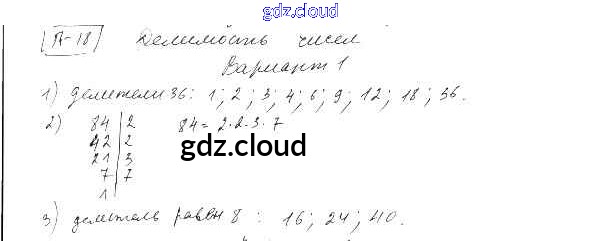 gdz.cloud
П-18 Делимость чисел
Вариант 1
1) делители 36: 1; 2; 3; 4; 6; 9; 12; 18; 36.
2) 84 | 2 84 = 2·2·3·7
42 | 2
21 | 3
gdz.cloud
7 | 7
1
3) делитель равен 8 : 16; 24; 40.